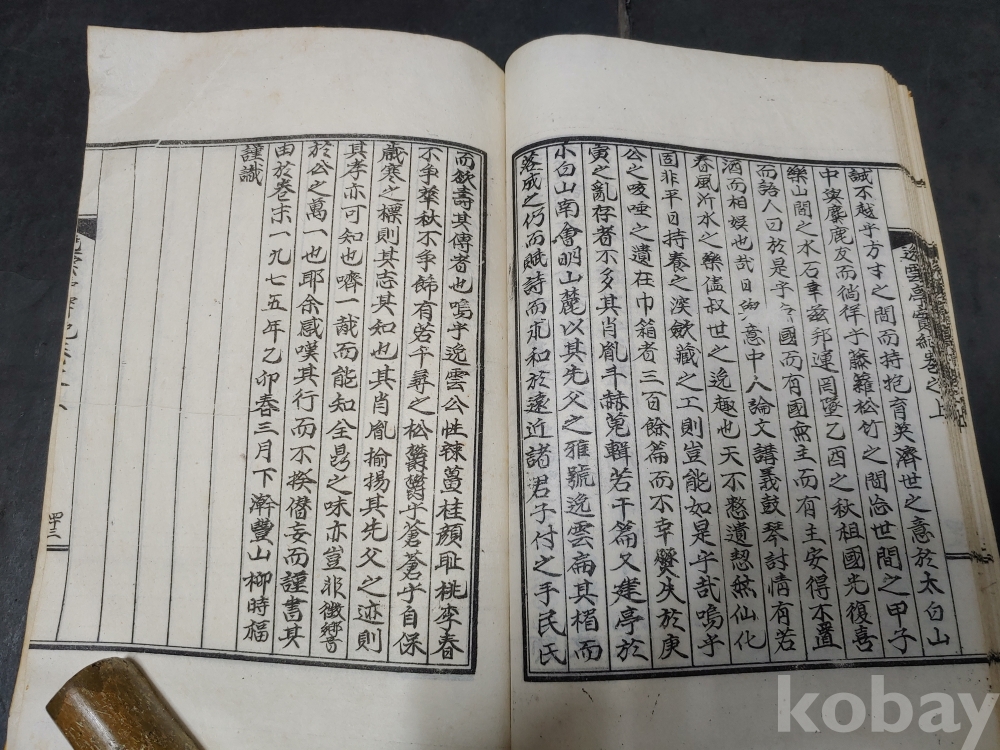 誠不越乎方寸之間而持抱育英濟世之意於太白山
中與麋鹿友而徜徉乎藤蘿松竹之間治世間之甲子
樂山間之水石幸玆邦運罔墜乙酉之秋祖國光復喜
而語人曰於是乎國而有國無主而有主安得不置
酒而相娛也哉日與意中人論文講義鼓琴討情有若
春風沂水之樂盍叔世之逸趣也天不憗遺恝然仙化
固非平日持養之深斂藏之工則豈能如是乎哉嗚乎
公之咳唾之遺在巾箱者三百餘篇而不幸爕失於庚
寅之亂存者不多其肖胤斗赫蒐輯若干篇又建亭於
小白山南會明山麓以其先父之雅號逸雲扁其楣而
落成之仍而賦詩而求和於遠近諸君子付之手民氏
逸雲亭實紀卷之上
而欲壽其傳者也嗚乎逸雲公性辣薑桂顔耻桃李春
不爭華秋不爭飾有若千尋之松欝欝乎蒼蒼乎自保
歲寒之標則其志其如也其肖胤揄揚其先父之迹則
其孝亦可知也嚌一胾而能知全鼎之味亦豈非徵嚮
於公之萬一也耶余感嘆其行而不揆僭妄而謹書其
由於卷末一九七五年乙卯春三月下澣豐山柳時福
謹識
四三
kobay